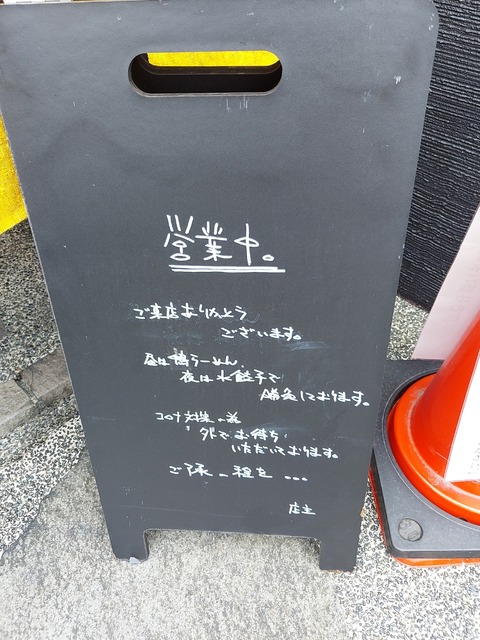 営業中。
ご来店ありがとう
ございます。
昼は鴨らーめん、
夜は水餃子で
勝負しております。
コロナ対策の為
外でお待ち
いただいております。
ご了承の程を…
店主